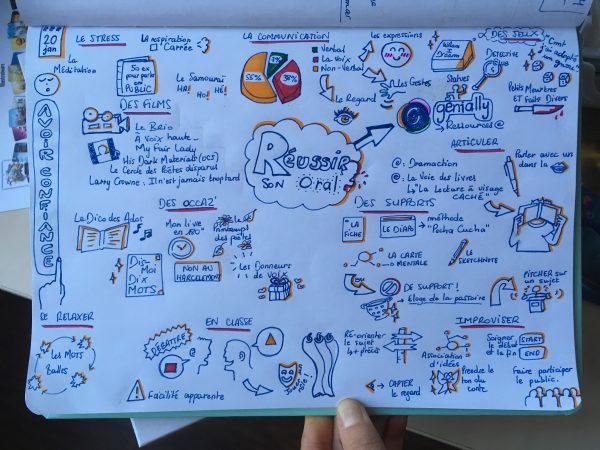 20
jan
LE STRESS
La
Méditation
La respiration
"Carrée"
50 ex
pour parler
en
PUBLIC
Le Samouraï
HA! HO! HÉ!
AVOIR CONFIANCE
LA COMMUNICATION
55%
7%
38%
Verbal
La Voix
Non-Verbal
Les expressions
Les Gestes
Le Regard
DES JEUX
When I
Dream
Detective
Club
Stories
"Comment
j'ai adopté
un gnou"
Petits Meurtres
et Faits Divers
genially
Ressources @
DES FILMS
Le Brio
À voix haute
My Fair Lady
His Dark Materials (OCS)
Le Cercle des Poètes disparus
Larry Crowne : Il n'est jamais trop tard
RÉUSSIR
SON Oral
ARTICULER
@: Dramaction
@: La Voie des livres
"La Lecture à visage
CACHÉ"
Parler avec un
dans la
DES OCCAZ'
Le Dico des Ados
Mon livre
en 180"
Le
Printemps
des poètes
Dis-
Moi
Dix
MOTS
NON AU
HARCÈLEMENT
Les Donneurs
de VOIX
DES SUPPORTS
LA
FICHE
LE DIAPO
méthode
"Pecha Cucha"
LA CARTE
MENTALE
LE
SKETCHNOTE
DE SUPPORT!
Éloge de la passoire
PITCHER sur
un sujet
SE RELAXER
Les Mots
Balles
EN CLASSE
DÉBATTRE
Facilité apparente
IMPROVISER
Ré-orienter
le sujet
Association
d'idées
Soigner
le début
et la fin
START
END
CAPTER
le regard
Prendre le
ton du
conte
Faire participer
le public.